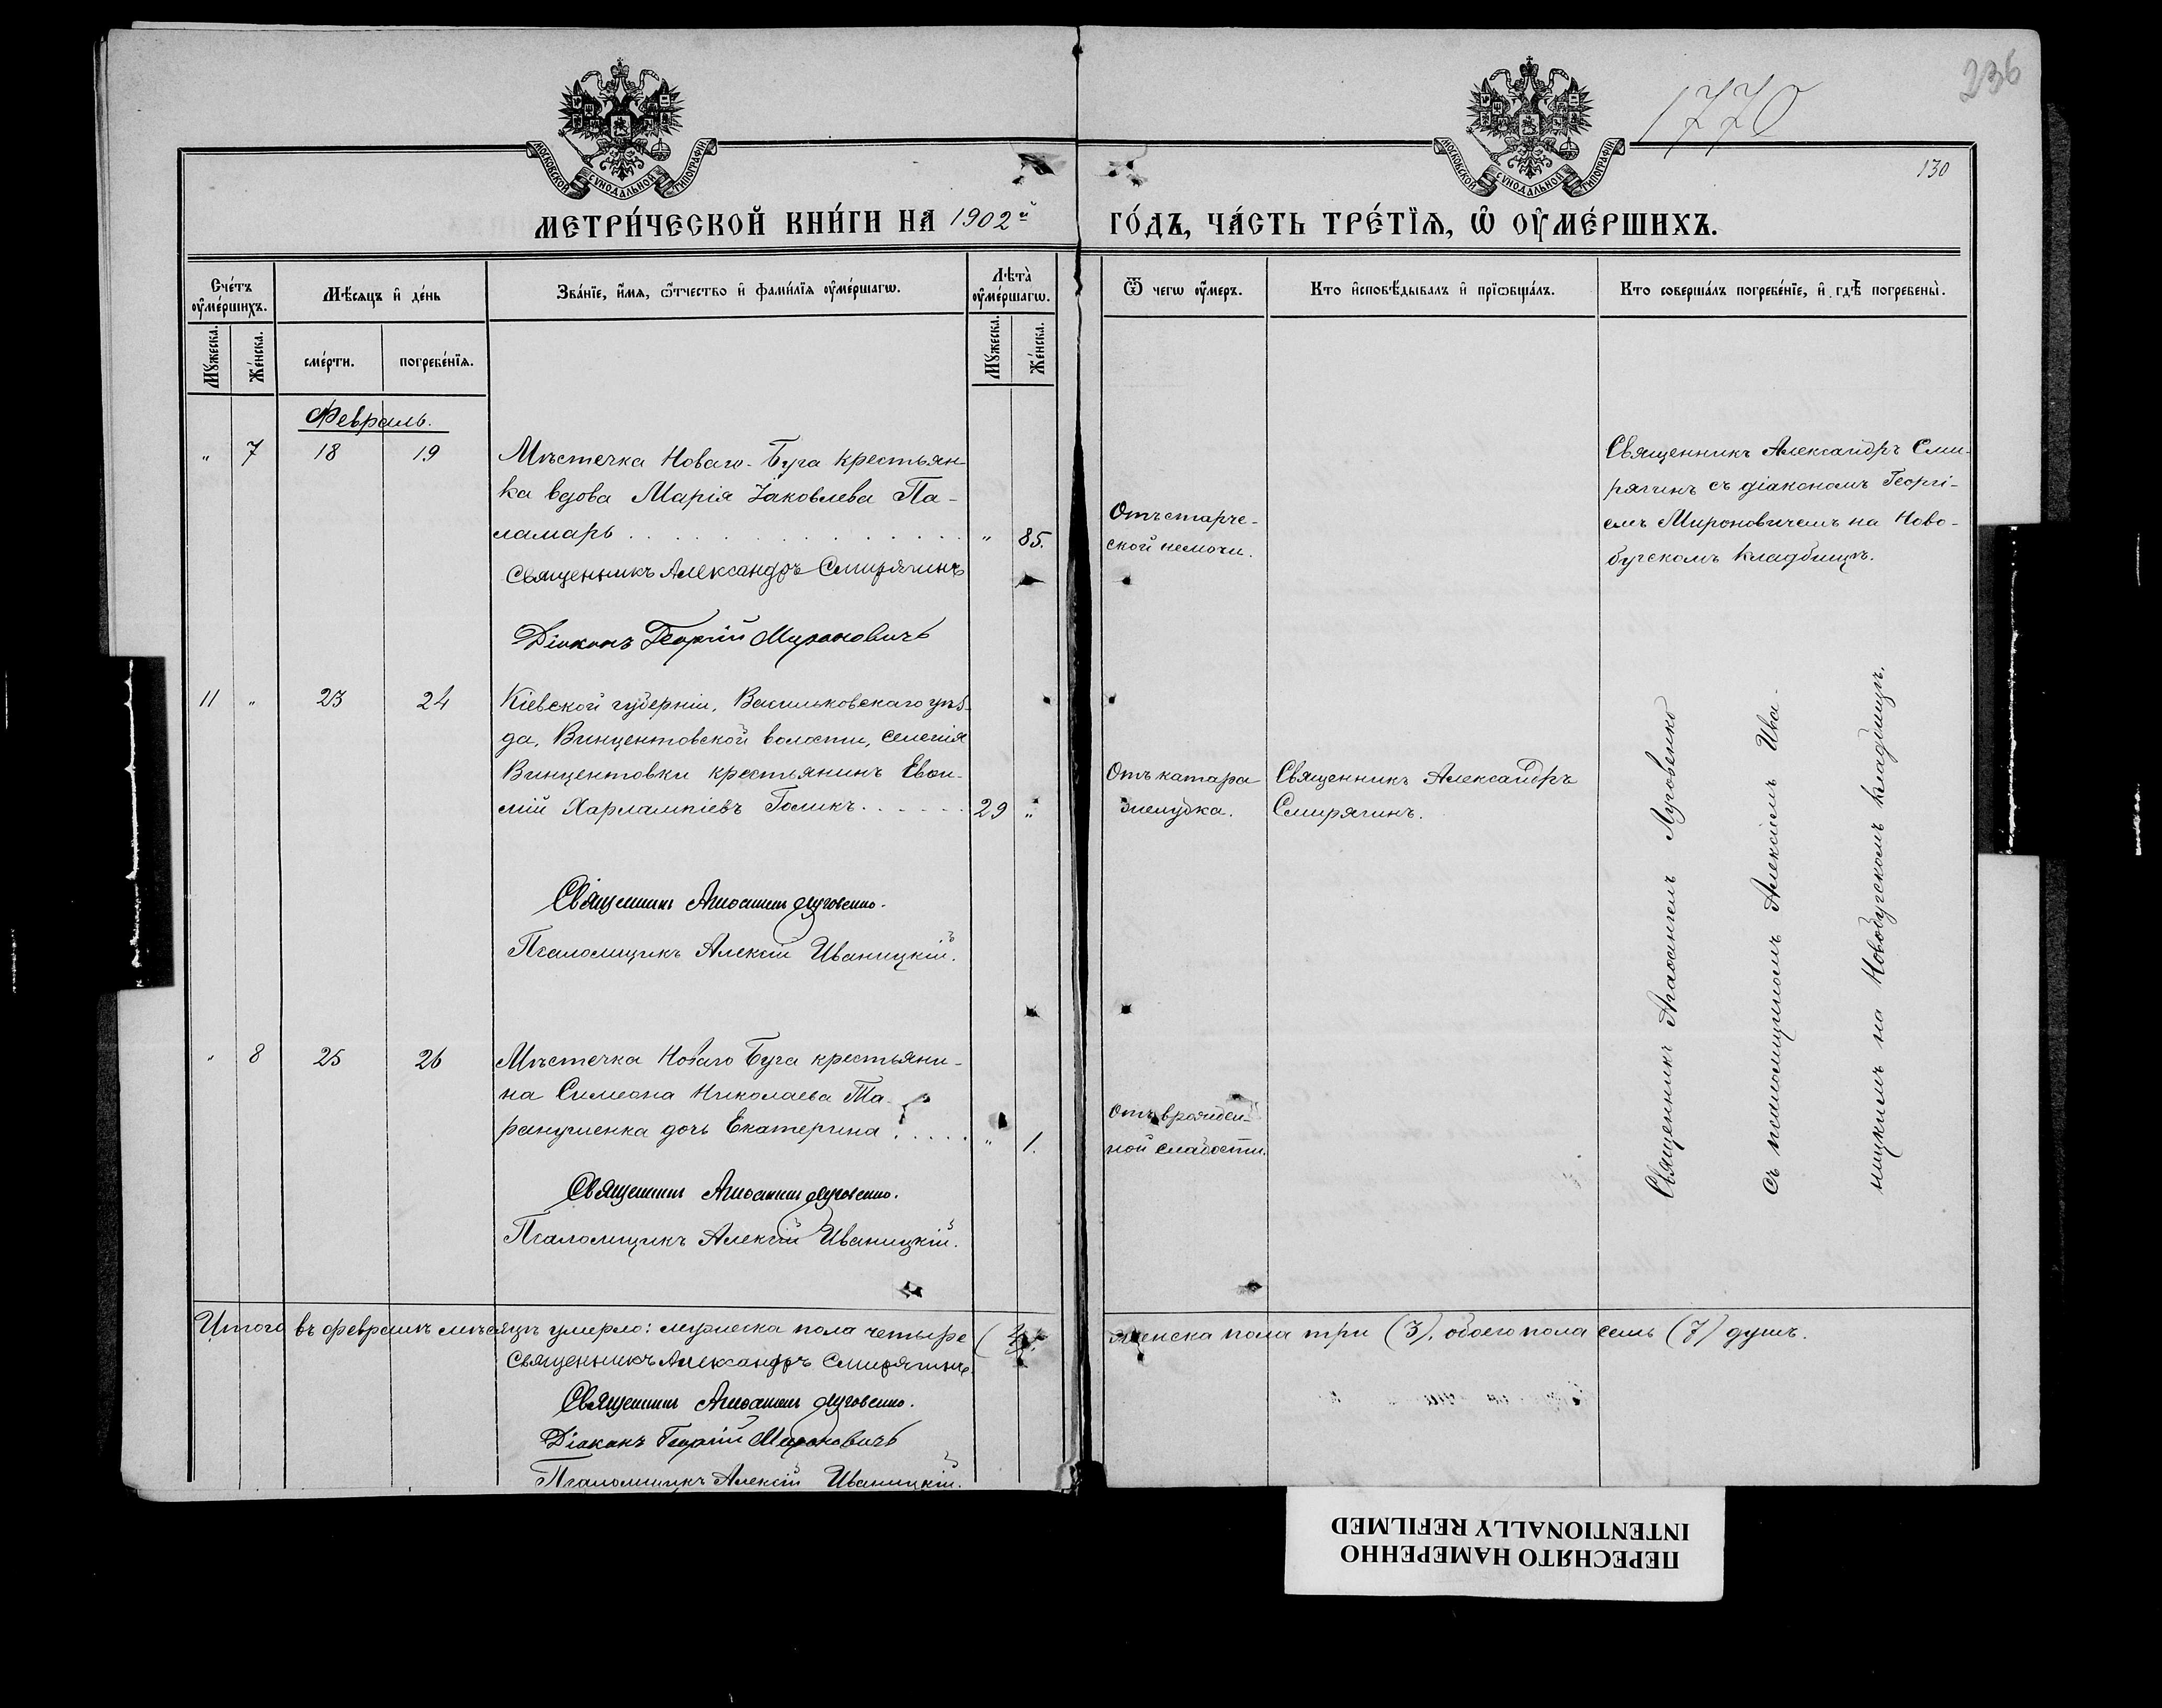 236
1770
130
МОСКОВСКОЙ СУНОДАЛЬНОЙ ТИПОГРАФІИ
МОСКОВСКОЙ СУНОДАЛЬНОЙ ТИПОГРАФІИ
МЕТРИ́ЧЕСКОЙ КНИ́ГИ НА 1902й ГО́ДЪ, ЧА́СТЬ ТРЕ́ТЇѦ, Ѡ҆ ОУ҆МЕ́РШИХЪ.
Сче́тъ оу҆ме́ршихъ.
Мѣ́сяцъ и҆ де́нь
Зва́нїе, и҆́мя, ѻ҆́тчество и҆ фами́лїя оу҆ме́ршагѡ.
Лѣта̀ оу҆ме́ршагѡ.
Ѿ чегѡ оу҆́меръ.
Кто и҆сповѣ́дывалъ и҆ прїѡбща́лъ.
Кто соверша́лъ погребе́нїе, и҆ гдѣ̀ погребены̀.
Мꙋ́жеска.
Же́нска.
сме́рти.
погребе́нїя.
Мꙋ́жеска.
Же́нска.
Февраль.
" 7 18 19 Мѣстечка Новаго-Буга крестьян-
ка вдова Марія Іаковлева Па-
ламарь " 85.
Священникъ Александръ Смирягинъ
Діаконъ Георгій Мироновичъ
Отъ старче-
ской немочи.
Священникъ Александръ Сми-
рягинъ съ діакономъ Георгі-
емъ Мироновичемъ на Ново-
бугскомъ кладбищѣ.
11 " 23 24 Кіевской губерніи, Васильковскаго уѣз-
да, Винцентовской волости, селенія
Винцентовки крестьянинъ Евѳи-
мій Харлампіевъ Голикъ 29 "
Священникъ Агаѳангелъ Луговенко.
Псаломщикъ Алексій Иваницкій.
Отъ катара
желудка.
Священникъ Александръ
Смирягинъ.
Священникъ Агаѳангелъ Луговенко
съ псаломщикомъ Алексіемъ Ива-
ницкимъ на Новобугскомъ кладбищѣ.
" 8 25 26 Мѣстечка Новаго Буга крестьяни-
на Симеона Николаева Та-
ранушенка дочь Екатерина " 1.
Священникъ Агаѳангелъ Луговенко.
Псаломщикъ Алексій Иваницкій.
Отъ врожден-
ной слабости.
Итого въ февралѣ мѣсяцѣ умерло: мужеска пола четыре (4), женска пола три (3), обоего пола семь (7) душъ.
Священникъ Александръ Смирягинъ.
Священникъ Агаѳангелъ Луговенко.
Діаконъ Георгій Мироновичъ
Псаломщикъ Алексій Иваницкій.
ПЕРЕСНЯТО НАМЕРЕННО
INTENTIONALLY REFILMED